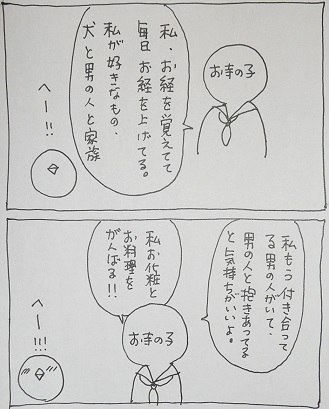 私、お経を覚えてて
毎日お経を上げてる。
私が好きなもの、
犬と男の人と家族
お寺の子
へー!!
私もう付き合って
る男の人がいて、
男の人と抱きあってる
と気持ちがいいよ。
私お化粧と
お料理を
がんばる!!
お寺の子
へー!!!